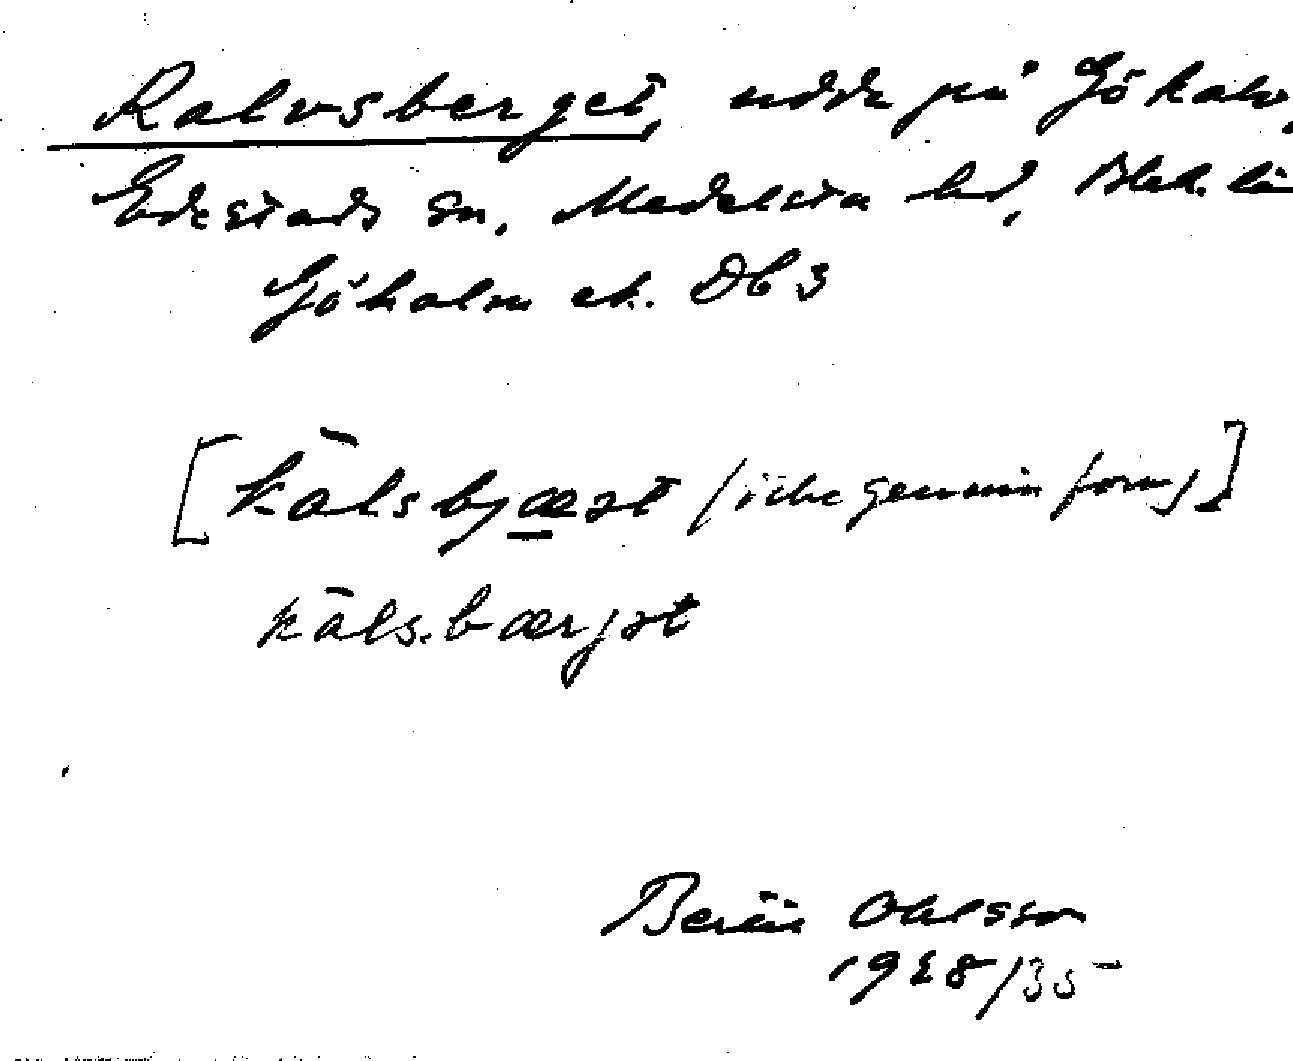 Kalvsberget, udde på Göhalv,
Edestads sn, Medelsta hd, Blek. län
Göholm ek. Db 3
[kālsbjæət (icke genuin form)]
kāls.bærjət
Bertil Ohlsson
1928/35